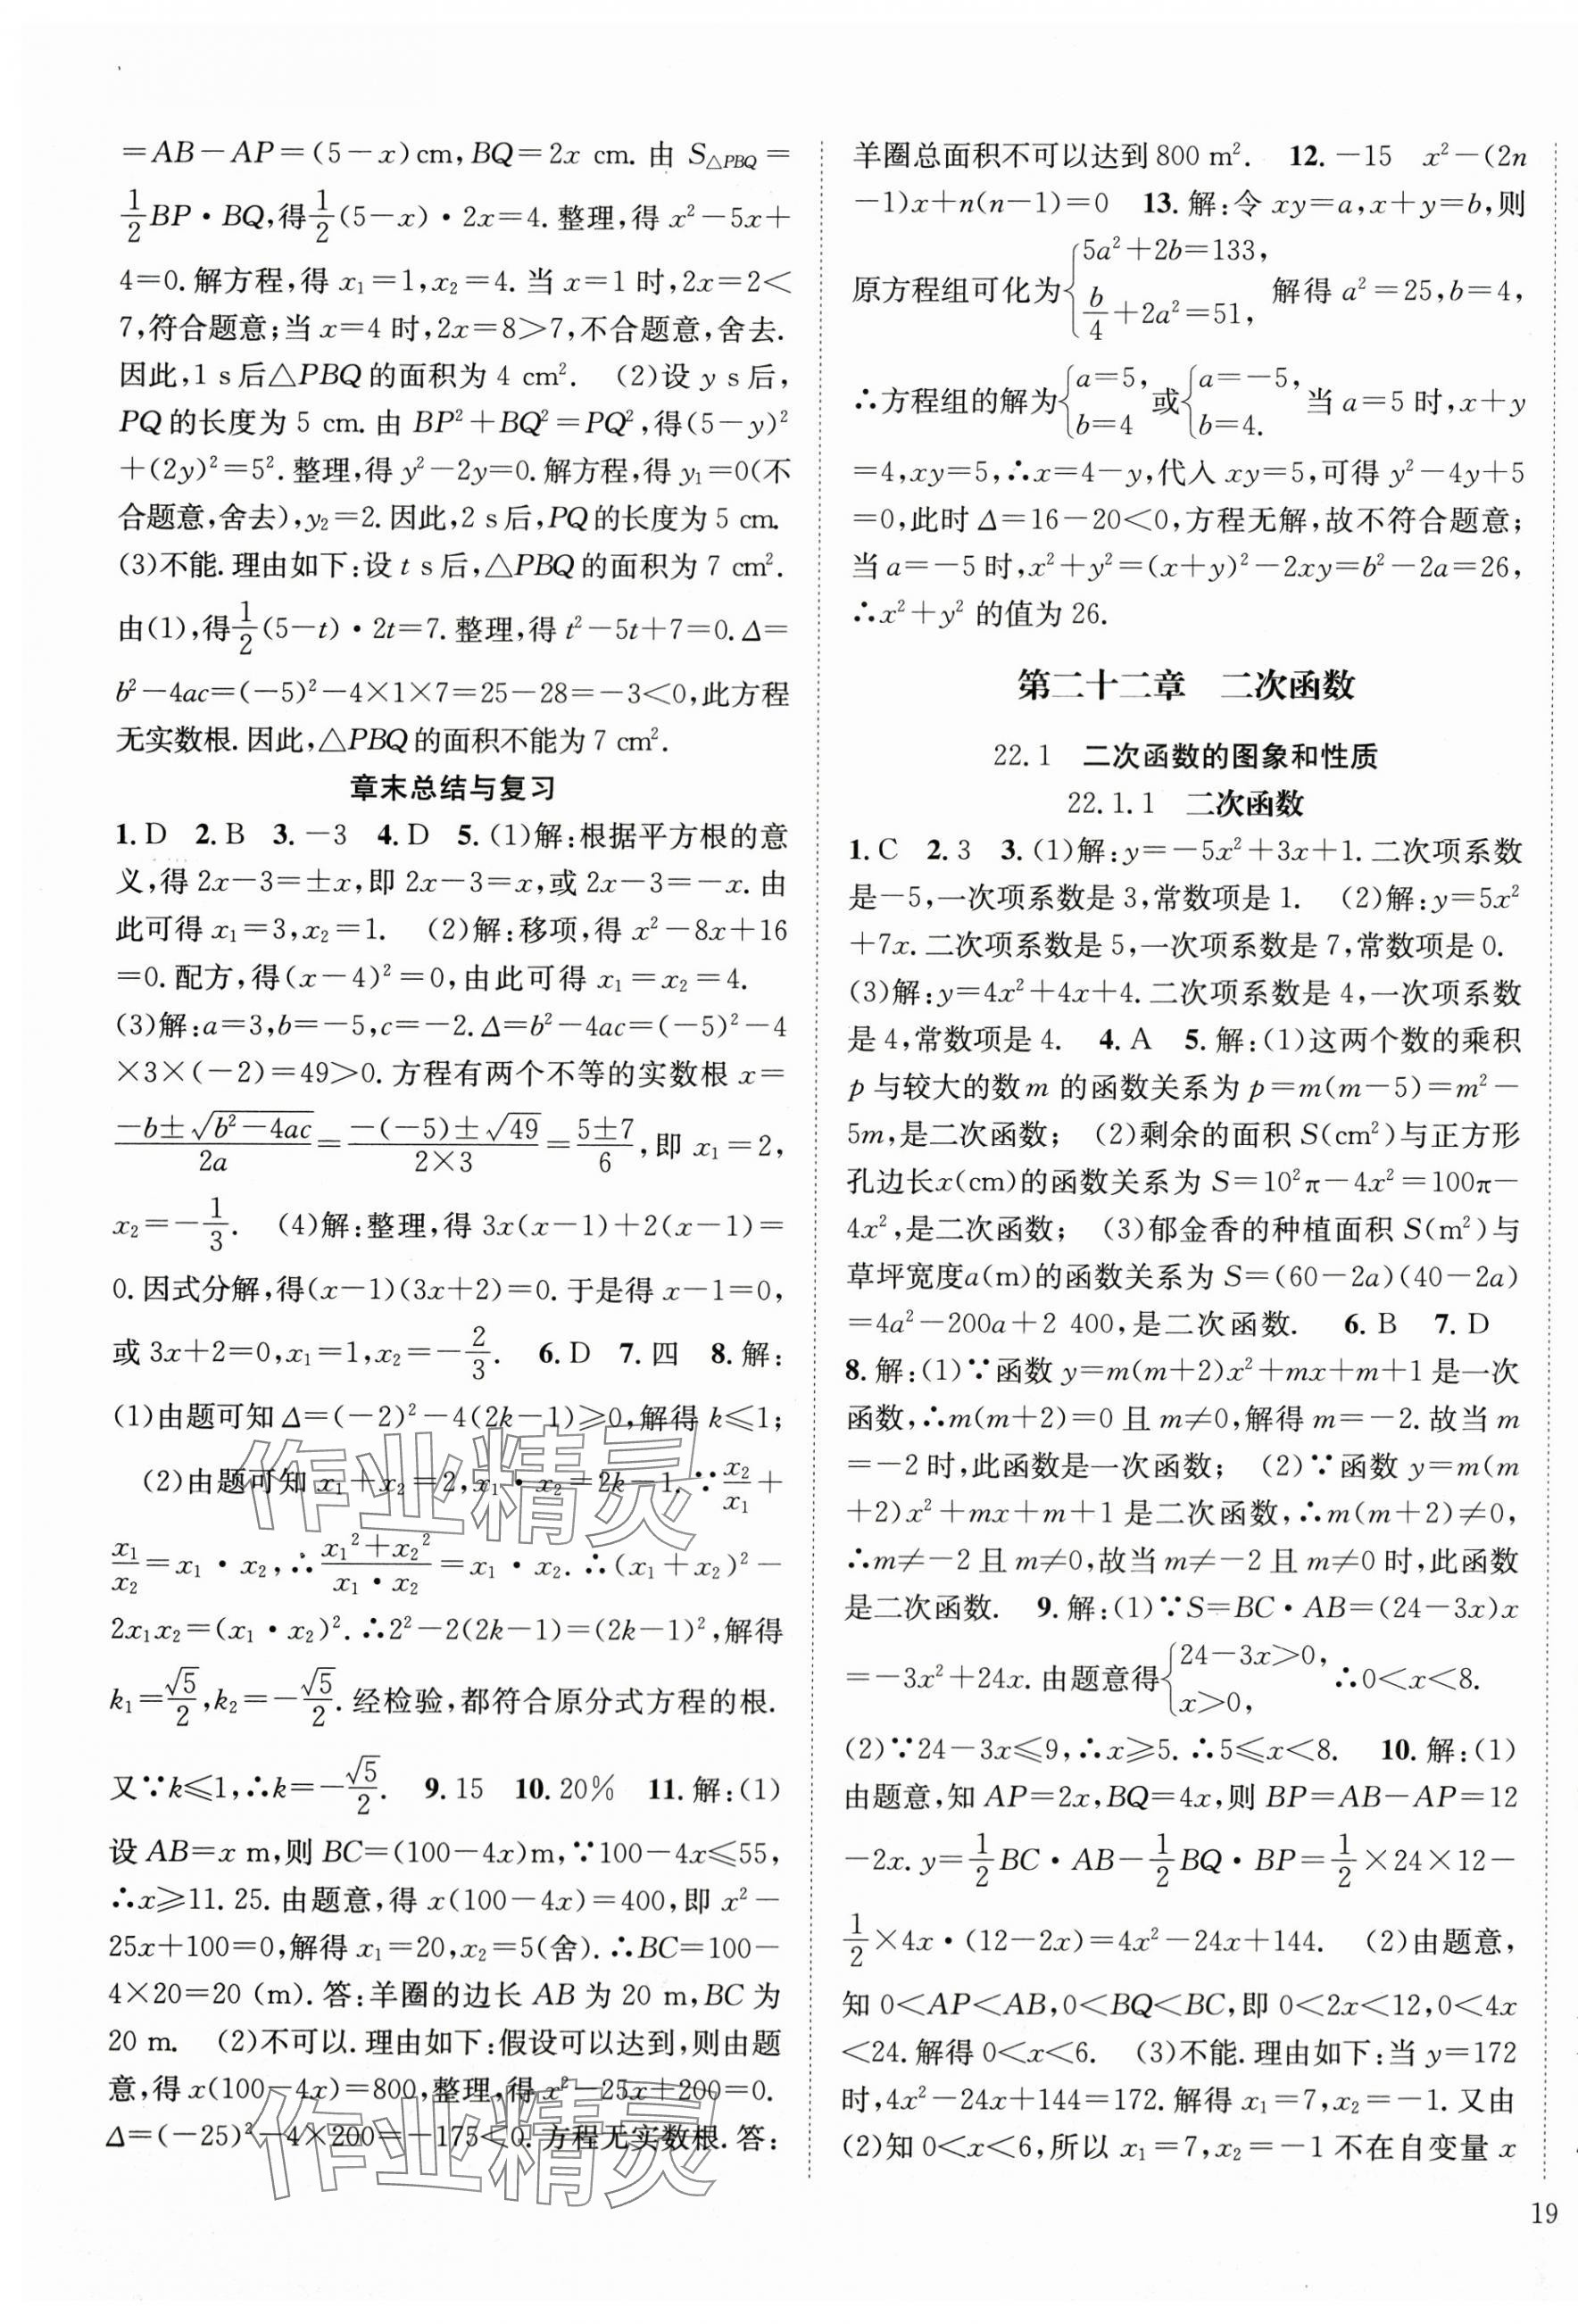 =AB-AP=(5-x)cm,BQ=2x cm.由 S△PBQ=
1/2BP·BQ,得1/2(5-x)·2x=4.整理,得 x²-5x+
4=0.解方程,得 x₁=1,x₂=4.当 x=1 时,2x=2<
7,符合题意;当 x=4 时,2x=8>7,不合题意,舍去.
因此,1 s后△PBQ的面积为 4 cm². (2)设 y s 后,
PQ的长度为 5 cm.由 BP²+BQ²=PQ²,得(5-y)²
+(2y)²=5².整理,得 y²-2y=0.解方程,得 y₁=0(不
合题意,舍去),y₂=2.因此,2 s后,PQ的长度为 5 cm.
(3)不能.理由如下:设 t s后,△PBQ的面积为 7 cm².
由(1),得1/2(5-t)·2t=7.整理,得 t²-5t+7=0.Δ=
b²-4ac=(-5)²-4×1×7=25-28=-3<0,此方程
无实数根.因此,△PBQ的面积不能为 7 cm².
章末总结与复习
1. D 2. B 3. -3 4. D 5. (1)解:根据平方根的意
义,得 2x-3=±x,即 2x-3=x,或 2x-3=-x.由
此可得 x₁=3,x₂=1. (2)解:移项,得 x²-8x+16
=0.配方,得(x-4)²=0,由此可得 x₁=x₂=4.
(3)解:a=3,b=-5,c=-2.Δ=b²-4ac=(-5)²-4
×3×(-2)=49>0.方程有两个不等的实数根 x=
(-b±√(b²-4ac))/2a=(-(-5)±√49)/(2×3)=(5±7)/6,即 x₁=2,
x₂=-1/3. (4)解:整理,得 3x(x-1)+2(x-1)=
0.因式分解,得(x-1)(3x+2)=0.于是得 x-1=0,
或 3x+2=0,x₁=1,x₂=-2/3. 6. D 7. 四 8. 解:
(1)由题可知 Δ=(-2)²-4(2k-1)≥0,解得 k≤1;
(2)由题可知 x₁+x₂=2,x₁·x₂=2k-1.∵x₂/x₁+
x₁/x₂=x₁·x₂,∴(x₁²+x₂²)/(x₁·x₂)=x₁·x₂.∴(x₁+x₂)²-
2x₁x₂=(x₁·x₂)².∴2²-2(2k-1)=(2k-1)²,解得
k₁=√5/2,k₂=-√5/2.经检验,都符合原分式方程的根.
又∵k≤1,∴k=-√5/2. 9. 15 10. 20% 11. 解:(1)
设 AB=x m,则 BC=(100-4x)m,∵100-4x≤55,
∴x≥11.25.由题意,得 x(100-4x)=400,即 x²-
25x+100=0,解得 x₁=20,x₂=5(舍).∴BC=100-
4×20=20 (m).答:羊圈的边长 AB 为 20 m,BC 为
20 m. (2)不可以.理由如下:假设可以达到,则由题
意,得 x(100-4x)=800,整理,得 x²-25x+200=0.
Δ=(-25)²-4×200=-175<0.方程无实数根.答:
羊圈总面积不可以达到 800 m². 12. -15 x²-(2n
-1)x+n(n-1)=0 13. 解:令 xy=a,x+y=b,则
原方程组可化为{5a²+2b=133, b/4+2a²=51, 解得 a²=25,b=4,
∴方程组的解为{a=5, b=4 或{a=-5, b=4. 当 a=5 时,x+y
=4,xy=5,∴x=4-y,代入 xy=5,可得 y²-4y+5
=0,此时 Δ=16-20<0,方程无解,故不符合题意;
当 a=-5 时,x²+y²=(x+y)²-2xy=b²-2a=26,
∴x²+y² 的值为 26.
第二十二章 二次函数
22.1 二次函数的图象和性质
22.1.1 二次函数
1. C 2. 3 3. (1)解:y=-5x²+3x+1.二次项系数
是-5,一次项系数是 3,常数项是 1. (2)解:y=5x²
+7x.二次项系数是 5,一次项系数是 7,常数项是 0.
(3)解:y=4x²+4x+4.二次项系数是 4,一次项系数
是 4,常数项是 4. 4. A 5. 解:(1)这两个数的乘积
p 与较大的数 m 的函数关系为 p=m(m-5)=m²-
5m,是二次函数; (2)剩余的面积 S(cm²)与正方形
孔边长x(cm)的函数关系为 S=10²π-4x²=100π-
4x²,是二次函数; (3)郁金香的种植面积 S(m²)与
草坪宽度a(m)的函数关系为 S=(60-2a)(40-2a)
=4a²-200a+2 400,是二次函数. 6. B 7. D
8. 解:(1)∵函数 y=m(m+2)x²+mx+m+1 是一次
函数,∴m(m+2)=0 且 m≠0,解得 m=-2.故当 m
=-2时,此函数是一次函数; (2)∵函数 y=m(m
+2)x²+mx+m+1 是二次函数,∴m(m+2)≠0,
∴m≠-2 且 m≠0,故当 m≠-2 且 m≠0 时,此函数
是二次函数. 9. 解:(1)∵S=BC·AB=(24-3x)x
=-3x²+24x.由题意得{24-3x>0, x>0, ∴0<x<8.
(2)∵24-3x≤9,∴x≥5.∴5≤x<8. 10. 解:(1)
由题意,知 AP=2x,BQ=4x,则 BP=AB-AP=12
-2x.y=1/2BC·AB-1/2BQ·BP=1/2×24×12-
1/2×4x·(12-2x)=4x²-24x+144. (2)由题意,
知 0<AP<AB,0<BQ<BC,即 0<2x<12,0<4x
<24.解得 0<x<6. (3)不能.理由如下:当 y=172
时,4x²-24x+144=172.解得 x₁=7,x₂=-1.又由
(2)知 0<x<6,所以 x₁=7,x₂=-1 不在自变量 x
19
作业精灵
作业精灵